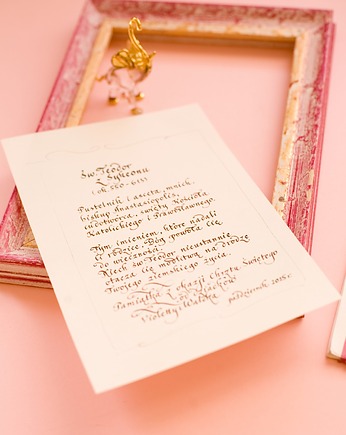 Św. Teodor
Sykeonu
(ok. 550-613)
Pustelnik i asceta, mnich,
biskup Anastasiopolis,
cudotwórca, święty Kościoła
Katolickiego i Prawosławnego
Tym imieniem, które nadali
Ci rodzice, Bóg powoła Cię
do wieczności.
Niech św. Teodor nieustannie
otacza Cię modlitwą na drodze
Twojego ziemskiego życia.
Pamiątka z okazji chrztu świętego
od Dziadków
Violetty
październik 2015 r.